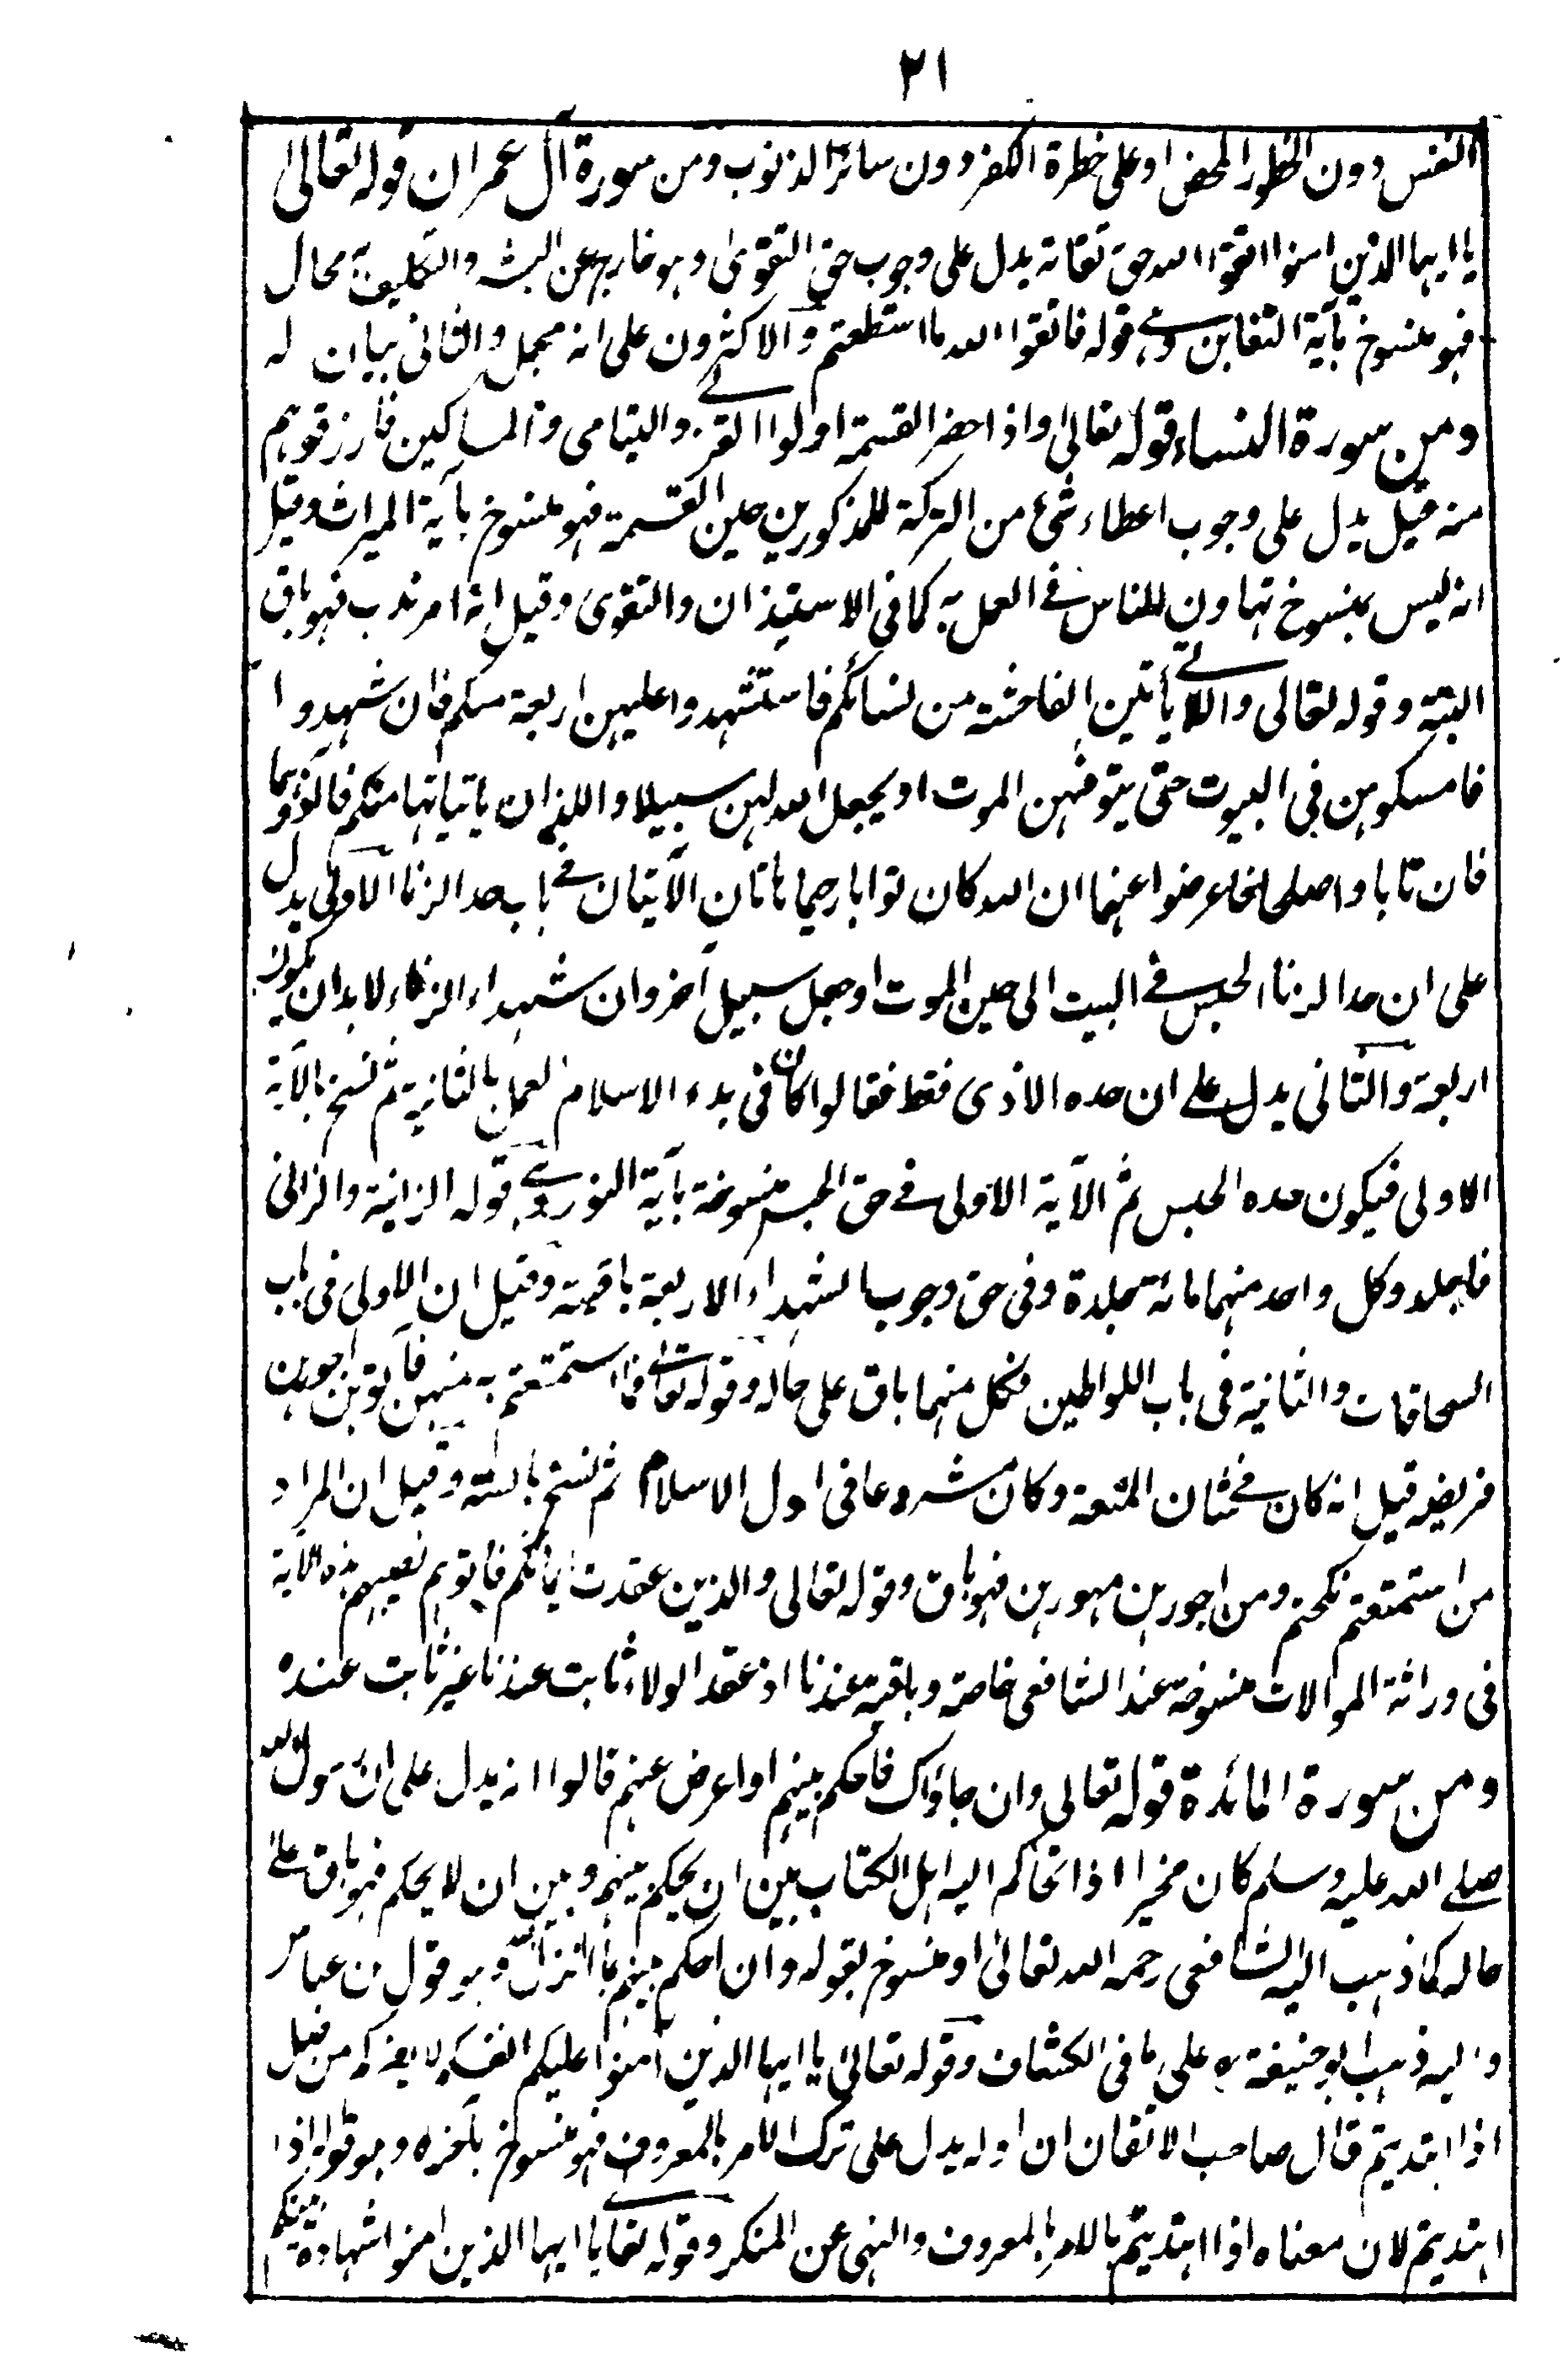 ٢١
النفس دون الخطور المحض او على خطرة الكفر دون سائر الذنوب ومن سورة آل عمران قوله تعالى
يا ايها الذين امنوا اتقوا الله حق تقاته يدل على وجوب حق التقوى وهو خارج عن البشر والتكليف به محال
فهو منسوخ بآية التغابن وهي قوله فاتقوا الله ما استطعتم والاكثرون على انه مجمل والثاني بيان له
ومن سورة النساء قوله تعالى واذا حضر القسمة اولوا القربى واليتامى والمساكين فارزقوهم
منه قيل يدل على وجوب اعطاء شئ من التركة للمذكورين حين القسمة فهو منسوخ بآية الميراث وقيل
انه ليس بمنسوخ تهاون للناس في العمل به كما في الاستيذان والتقوى وقيل انه امر ندب فهو باق
البتة وقوله تعالى واللاتي يأتين الفاحشة من نسائكم فاستشهدوا عليهن اربعة منكم فان شهدوا
فامسكوهن في البيوت حتى يتوفهن الموت او يجعل الله لهن سبيلا واللذان ياتيانها منكم فآذوهما
فان تابا واصلحا فاعرضوا عنهما ان الله كان توابا رحيما هاتان الآيتان في باب حد الزنا الاولى يدل
على ان حد الزنا الحبس في البيت الى حين الموت او جعل سبيل آخر وان شهداء الزناء لا بد ان يكون
اربعة والثاني يدل على ان حده الاذى فقط فقالوا كان في بدء الاسلام العمل بالثانية ثم نسخ بالآية
الاولى فيكون حده الحبس ثم الآية الاولى في حق الحبس منسوخة بآية النور وهي قوله الزانية والزاني
فاجلدوا كل واحد منهما مائة جلدة وفي حق وجوب الشهداء الاربعة باقية وقيل ان الاولى في باب
السحاقات والثانية في باب اللواطين فكل منهما باق على حاله وقوله تعالى فما استمتعتم به منهن فآتوهن اجورهن
فريضة قيل انه كان في شان المتعة وكان مشروعا في اول الاسلام ثم نسخ بالسنة وقيل ان المراد
من استمتعتم نكحتم ومن اجورهن مهورهن فهو باق وقوله تعالى والذين عقدت ايمانكم فآتوهم نصيبهم هذه الآية
في وراثة الموالات منسوخة عند الشافعي خاصة وباقية عندنا اذ عقد الولاء ثابت عندنا غير ثابت عنده
ومن سورة المائدة قوله تعالى وان جاؤك فاحكم بينهم او اعرض عنهم قالوا انه يدل على ان رسول الله
صلى الله عليه وسلم كان مخيرا اذا تحاكم اليه اهل الكتاب بين ان يحكم بينهم وبين ان لا يحكم فهو باق على
حاله كما ذهب اليه الشافعي رحمه الله تعالى او منسوخ بقوله وان احكم بينهم بما انزل الله وهو قول بن عباس
واليه ذهب ابو حنيفة ره على ما في الكشاف وقوله تعالى يا ايها الذين آمنوا عليكم انفسكم لا يضركم من ضل
اذا اهتديتم قال صاحب الاتقان ان اوله يدل على ترك الامر بالمعروف فهو منسوخ بآخره وهو قوله اذا
اهتديتم لان معناه اذا اهتديتم بالامر بالمعروف والنهي عن المنكر وقوله تعالى يا ايها الذين امنوا شهادة بينكم